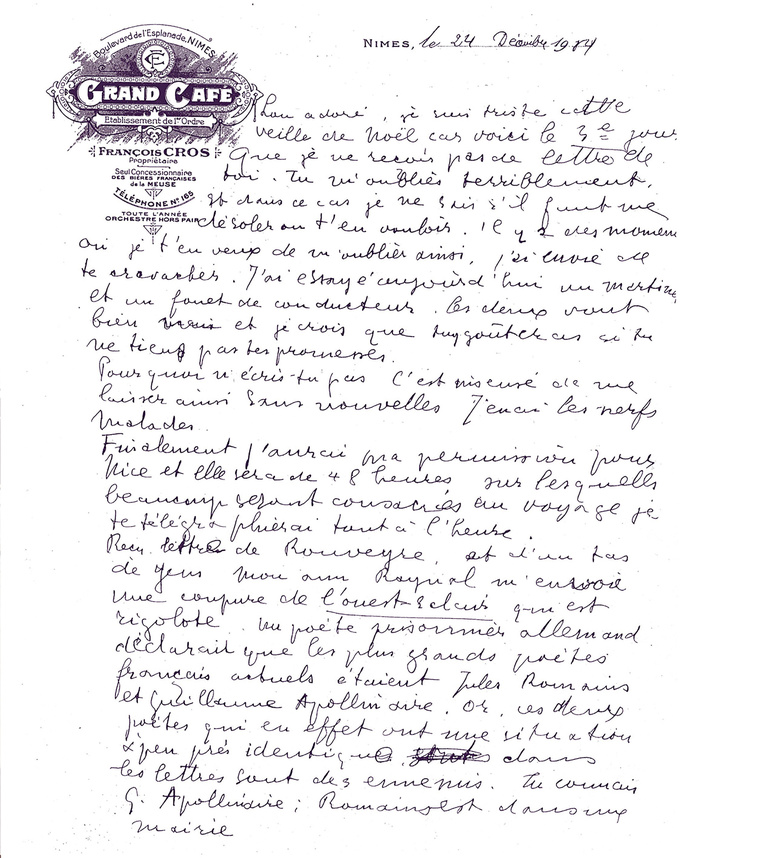 Boulevard de l'Esplanade, NIMES
GRAND CAFÉ
Etablissement de 1er Ordre
FRANÇOIS CROS
Propriétaire
Seul Concessionnaire
DES BIÈRES FRANÇAISES
de la MEUSE
TÉLÉPHONE No 165
TOUTE L'ANNÉE
ORCHESTRE HORS PAIR
NIMES, le 24 Décembre 1914
Lou adoré, je suis triste cette
veille de Noël car voici le 3e jour
que je ne reçois pas de lettre de
toi. Tu m'oublies terriblement.
Et dans ce cas je ne sais s'il faut me
désoler ou t'en vouloir. il y a des moments
où je t'en veux de m'oublier ainsi, j'ai envie de
te cravacher. J'ai essayé aujourd'hui un martinet
et un fouet de conducteur. Les deux vont
bien et je crois que tu y goûteras si tu
ne tiens pas tes promesses.
Pourquoi n'écris-tu pas C'est insensé de me
laisser ainsi sans nouvelles J'en ai les nerfs
malades.
Finalement j'aurai ma permission pour
Nice et Elle sera de 48 heures sur lesquelles
beaucoup seront consacrés au voyage je
te télégraphierai tout à l'heure.
Reçu lettre de Rouveyre, et d'un tas
de gens mon ami Raynal m'envoie
une coupure de l'ouest-Eclair qui est
rigolote. Un poète prisonnier allemand
déclarait que les plus grands poètes
français actuels étaient Jules Romains
et Guillaume Apollinaire. Or, ces deux
poètes qui en effet ont une situation
à peu près identique dans
les lettres sont des ennemis. Tu connais
G. Apollinaire ; Romains est dans une
mairie